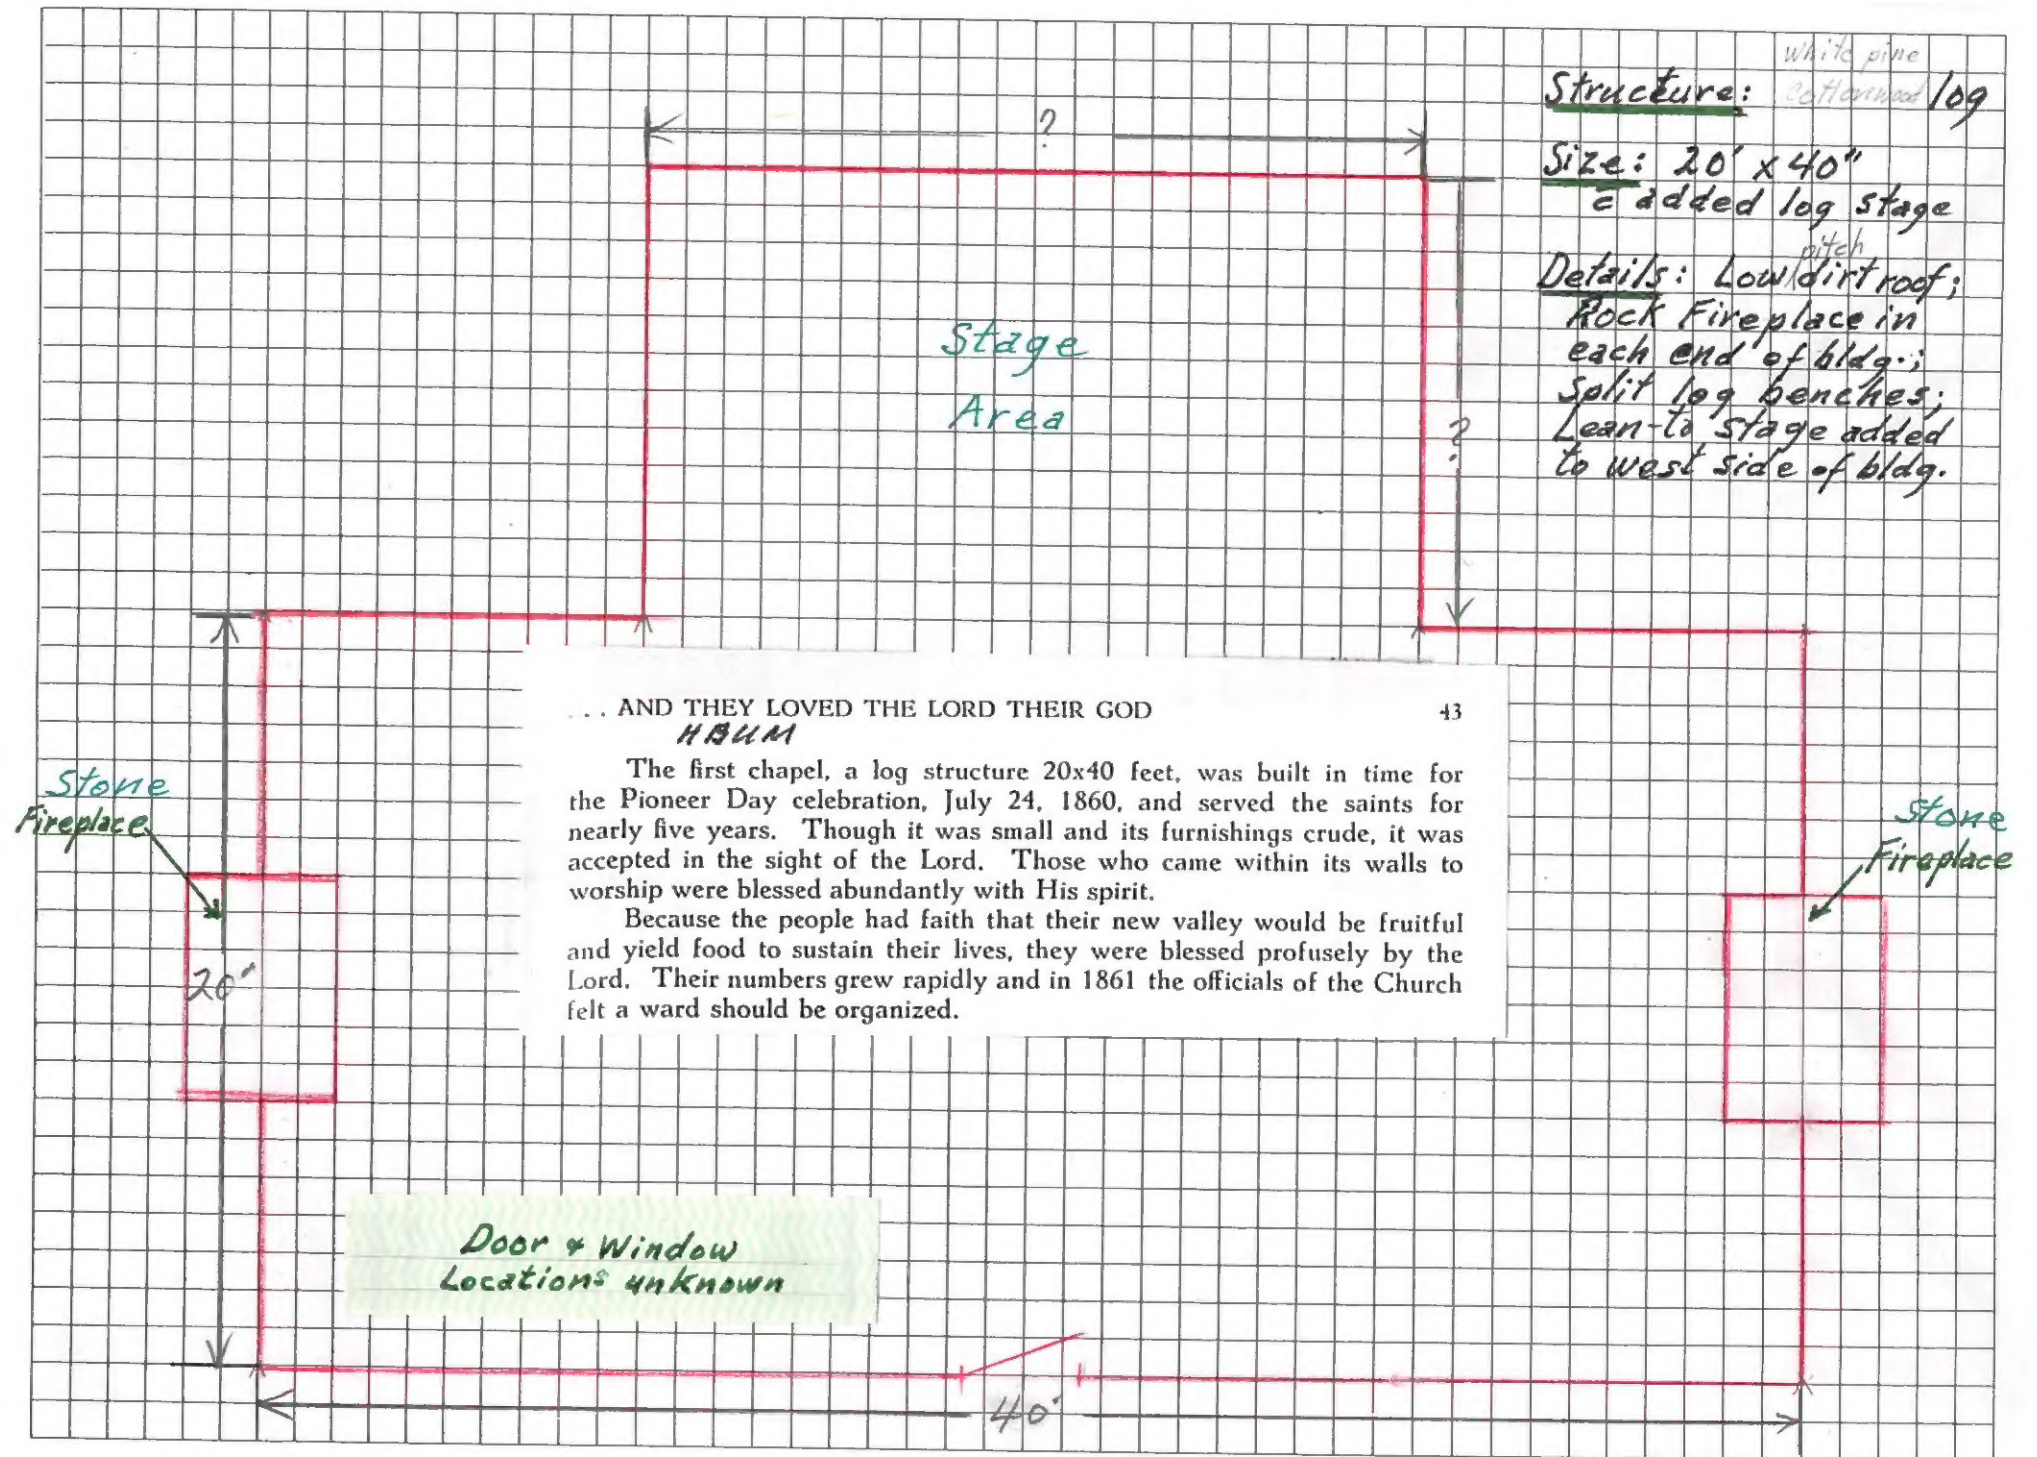 White pine
Structure: Cottonwood log
Size: 20' x 40"
c̄ added log stage
pitch
Details: Low/dirt roof;
Rock Fireplace in
each end of bldg.;
Split log benches;
Lean-to stage added
to west side of bldg.
?
?
Stage
Area
... AND THEY LOVED THE LORD THEIR GOD 43
HBUM
The first chapel, a log structure 20x40 feet, was built in time for
the Pioneer Day celebration, July 24, 1860, and served the saints for
nearly five years. Though it was small and its furnishings crude, it was
accepted in the sight of the Lord. Those who came within its walls to
worship were blessed abundantly with His spirit.
Because the people had faith that their new valley would be fruitful
and yield food to sustain their lives, they were blessed profusely by the
Lord. Their numbers grew rapidly and in 1861 the officials of the Church
felt a ward should be organized.
Stone
Fireplace
20'
Stone
Fireplace
Door & Window
Locations unknown
40'